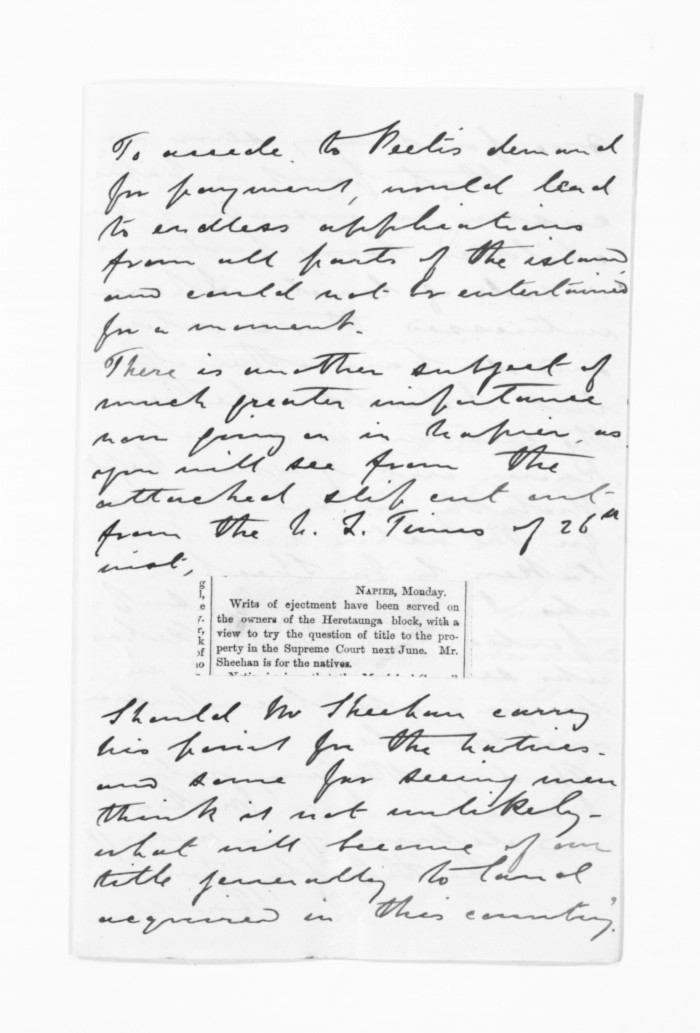 To accede to Peeti's demand
for payment, would lead
to endless applications
from all parts of the island,
and could not be entertained
for a moment.
There is another subject of
much greater importance
now going on in Napier, as
you will see from the
attached slip cut out
from the N. Z. Times of 26th
inst,
g
l,
e
y.
r,
k
of
no
NAPIER, Monday.
Writs of ejectment have been served on
the owners of the Heretaunga block, with a
view to try the question of title to the pro-
perty in the Supreme Court next June. Mr.
Sheehan is for the natives.
Should Mr Sheehan carry
his point for the natives -
and some far seeing men
think it not unlikely -
what will become of our
title generally to land
acquired in this country.